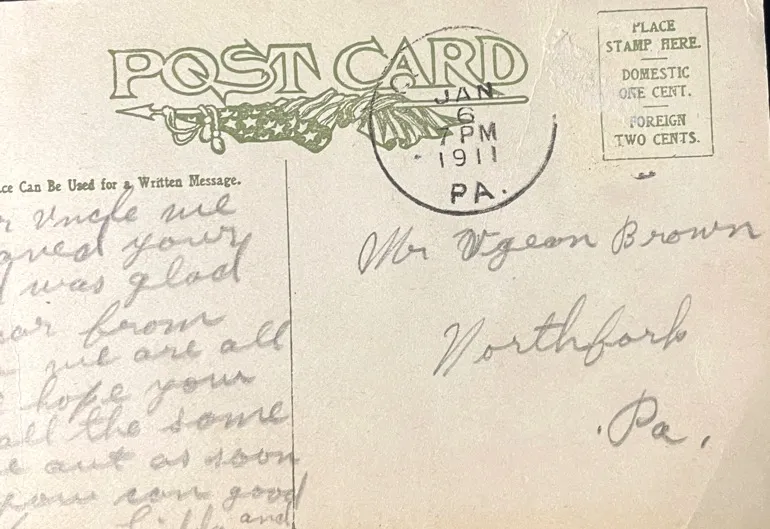 POST CARD
PLACE
STAMP HERE.
DOMESTIC
ONE CENT.
FOREIGN
TWO CENTS.
C
JAN
6
7 PM
1911
PA.
ce Can Be Used for a Written Message.
r Uncle we
aved your
was glad
ar from
we are all
hope your
all the some
e out as soon
you can good
and
Mr Ugeon Brown
Northfork
Pa,